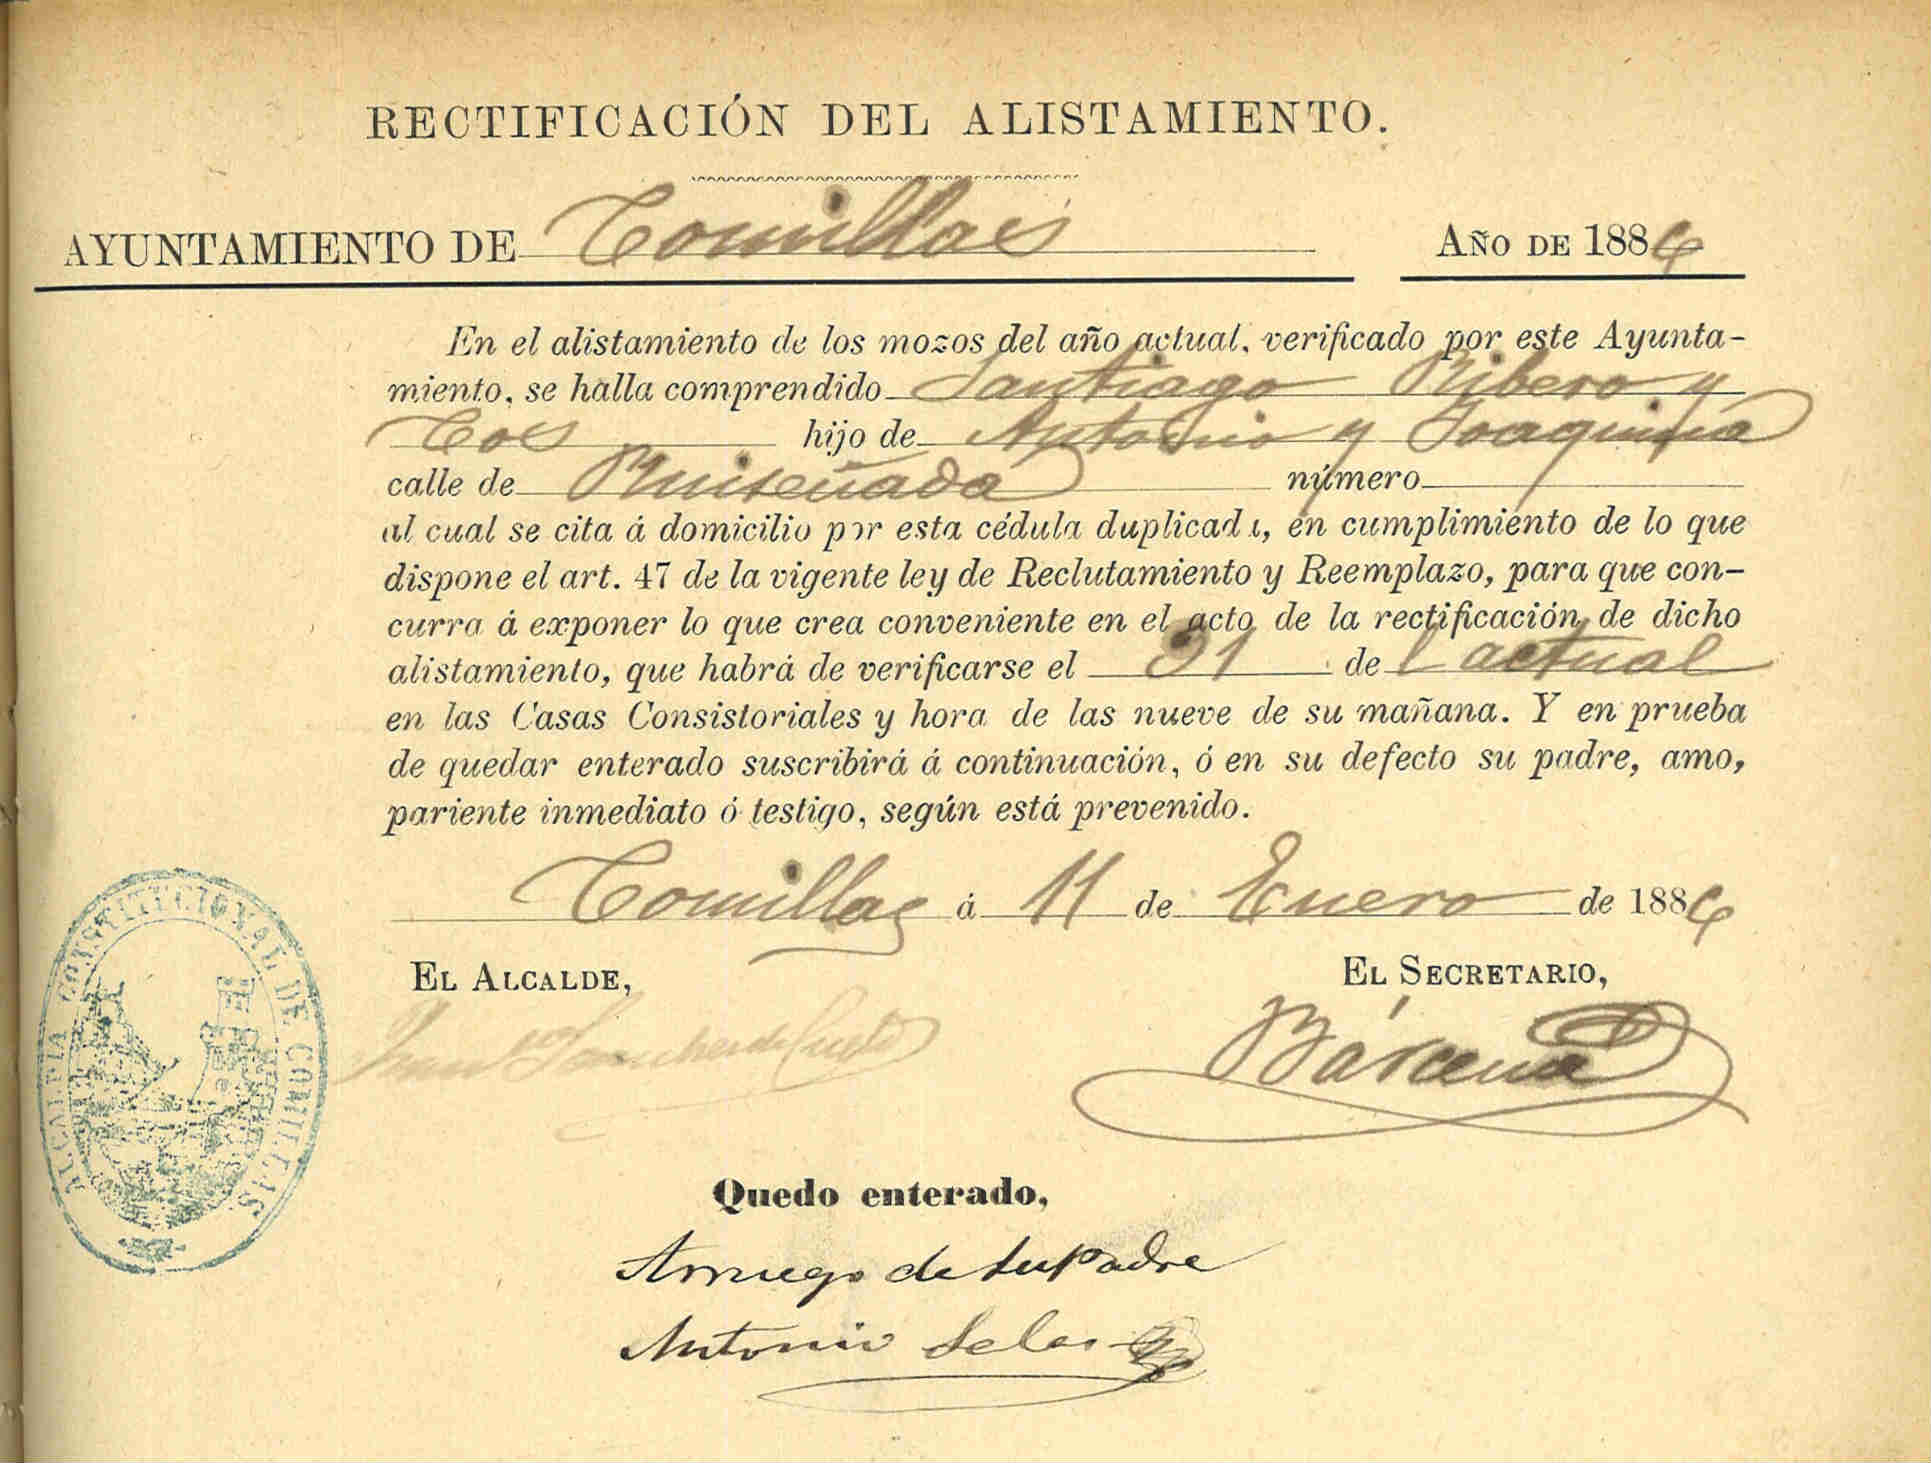 RECTIFICACIÓN DEL ALISTAMIENTO.
AYUNTAMIENTO DE Comillas AÑO DE 1886
En el alistamiento de los mozos del año actual, verificado por este Ayunta-
miento, se halla comprendido Santiago Ribero y
Cos hijo de Antonio y Joaquina
calle de Ruiseñada número
al cual se cita á domicilio por esta cédula duplicada, en cumplimiento de lo que
dispone el art. 47 de la vigente ley de Reclutamiento y Reemplazo, para que con-
curra á exponer lo que crea conveniente en el acto de la rectificación de dicho
alistamiento, que habrá de verificarse el 31 de l actual
en las Casas Consistoriales y hora de las nueve de su mañana. Y en prueba
de quedar enterado suscribirá á continuación, ó en su defecto su padre, amo,
pariente inmediato ó testigo, según está prevenido.
Comillas á 11 de Enero de 1886
EL ALCALDE, EL SECRETARIO,
Juan Sanchez Bárcena
ALCALDIA CONSTITUCIONAL DE COMILLAS
Quedo enterado,
Arruego de su Padre
Antonio